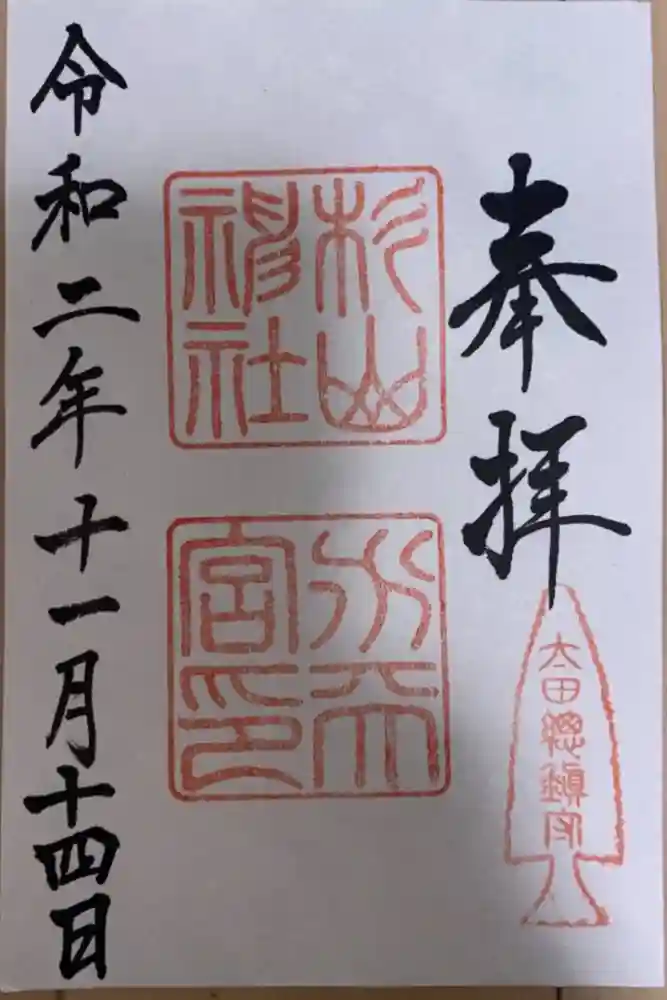 奉拝
太田總鎭守
杉山
神社
水天
宮印
令和二年十一月十四日